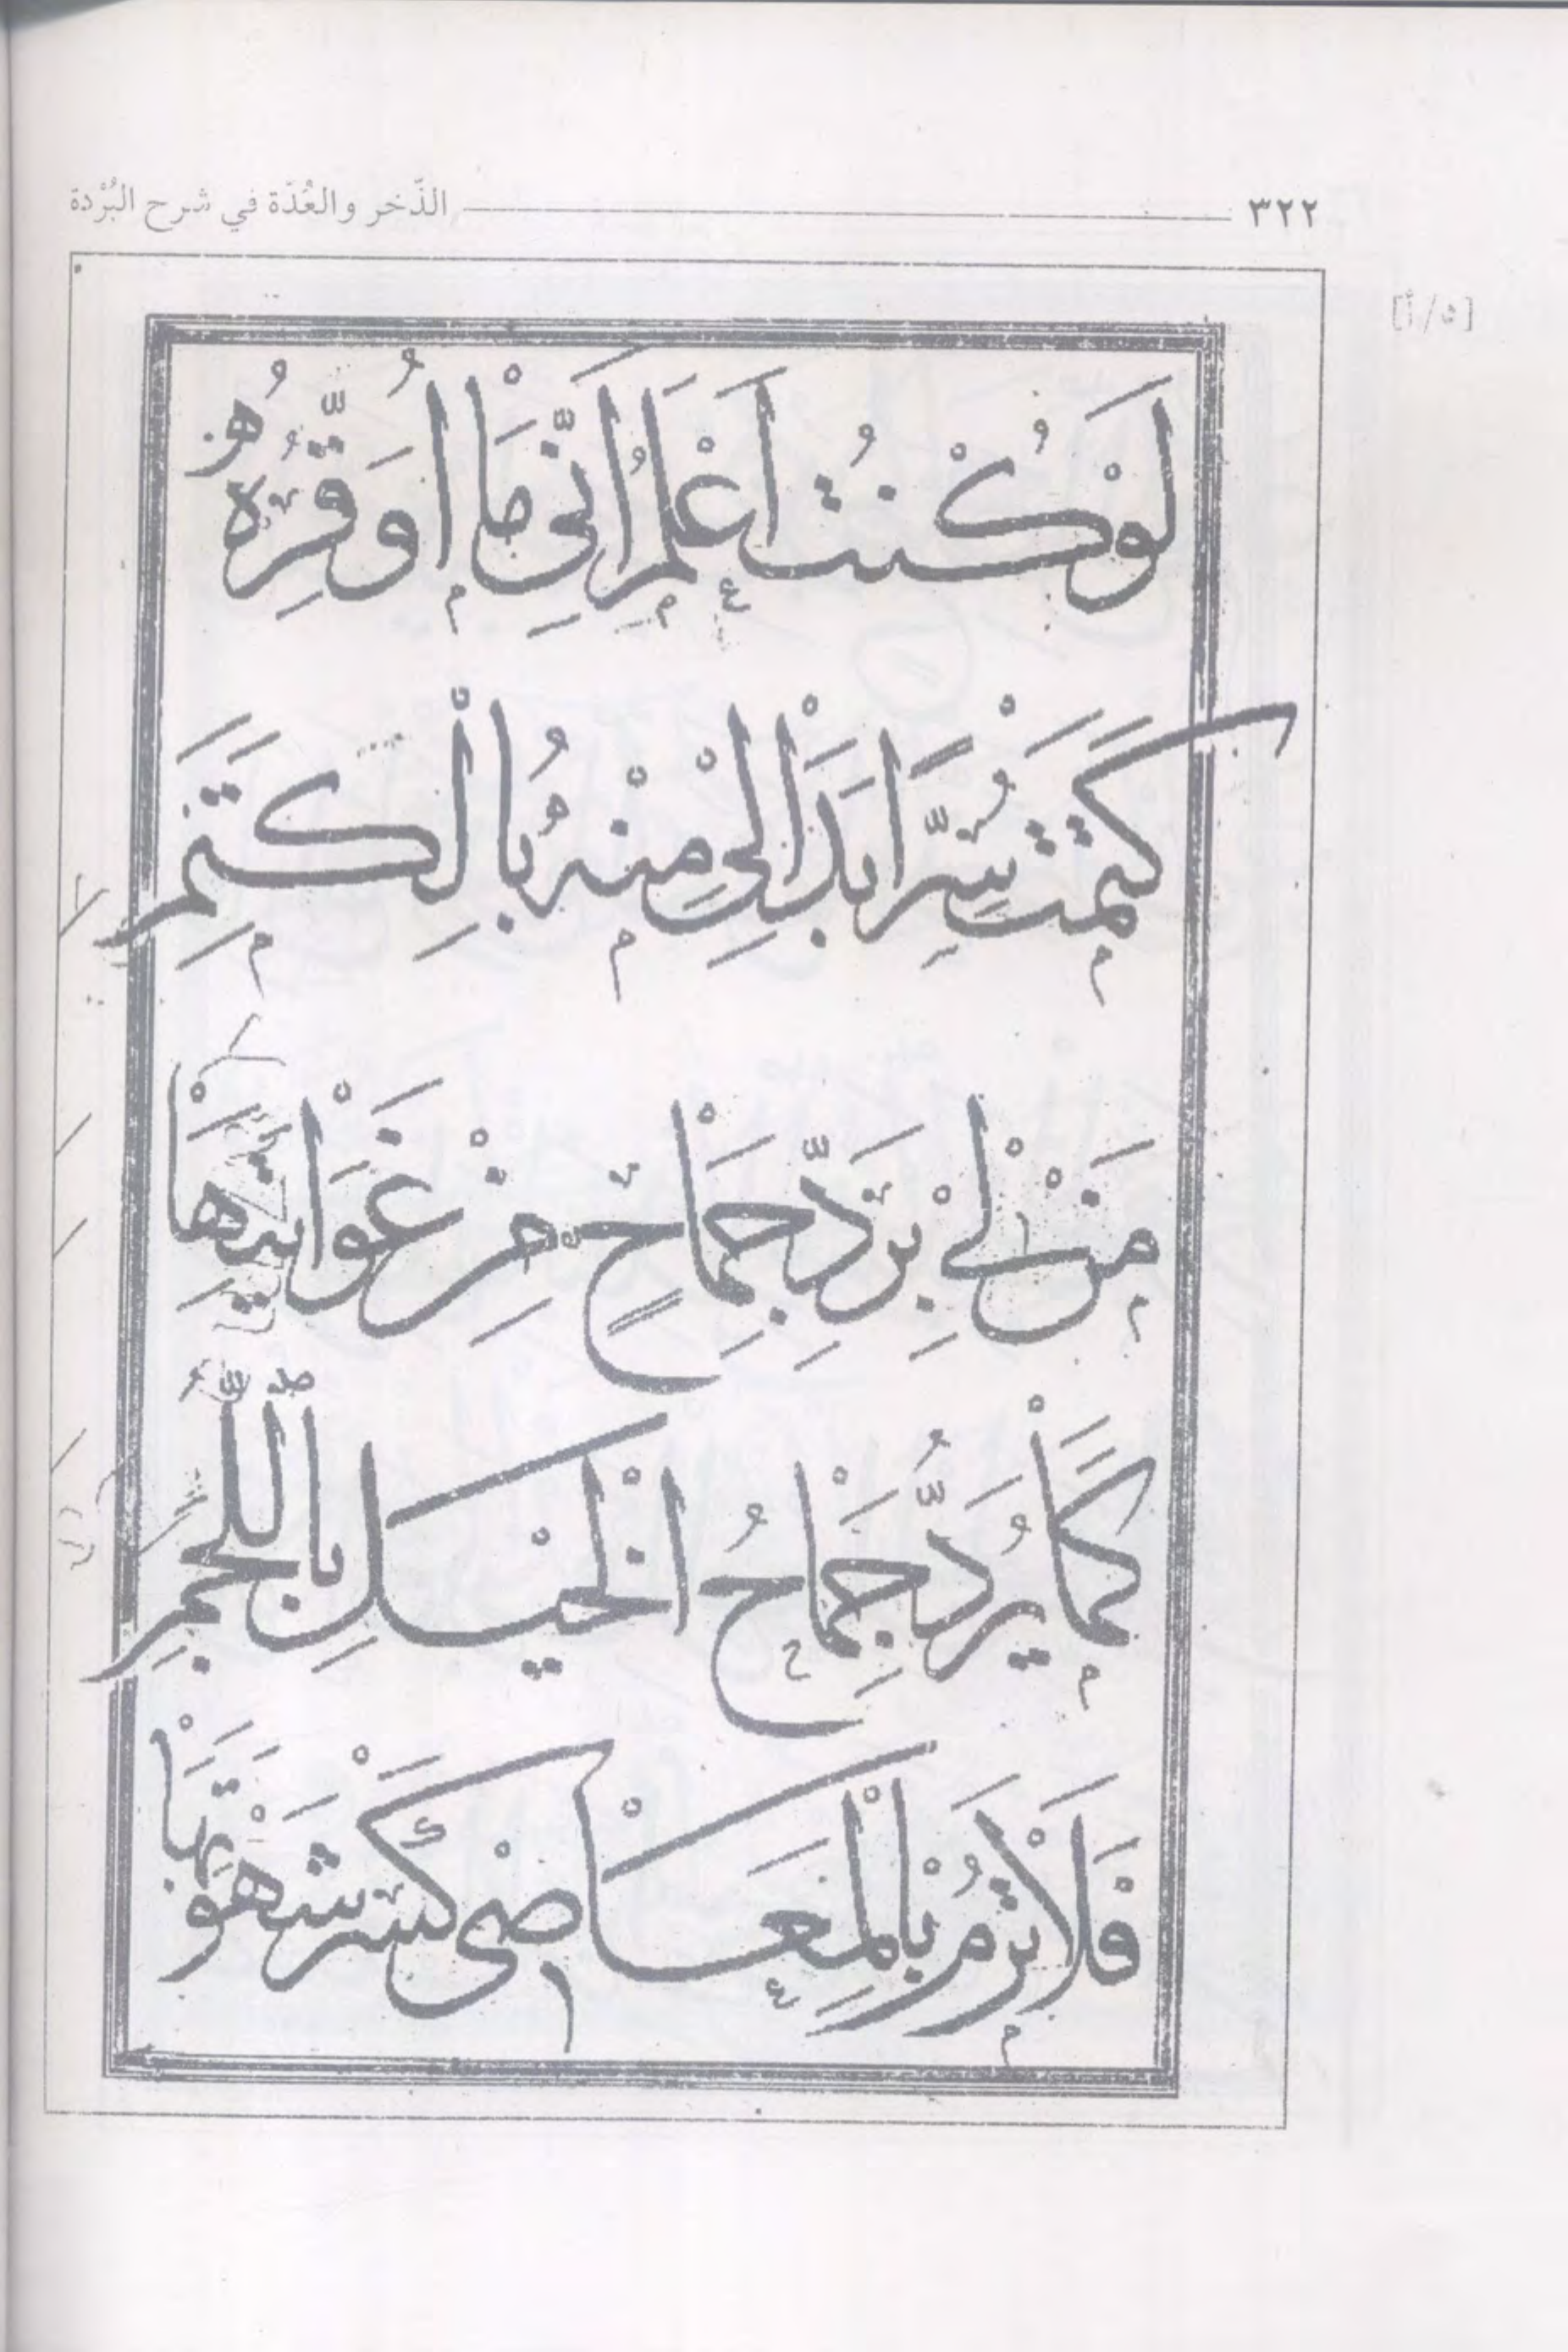 ٣٢٢ الذّخر والعُدّة في شرح البُرْدة
[٥/أ]
لَوْ كُنْتُ اَعْلَمُ اَنِّي مَا اُوَقِّرُهُ
كَتَمْتُ سِرًّا بَدَا لِي مِنْهُ بِالْكَتَمِ
مَنْ لِي بِرَدِّ جِمَاحٍ مِنْ غَوَايَتِهَا
كَمَا يُرَدُّ جِمَاحُ الْخَيْلِ بِاللُّجُمِ
فَلَا تَرُمْ بِالْمَعَاصِي كَسْرَ شَهْوَتِهَا